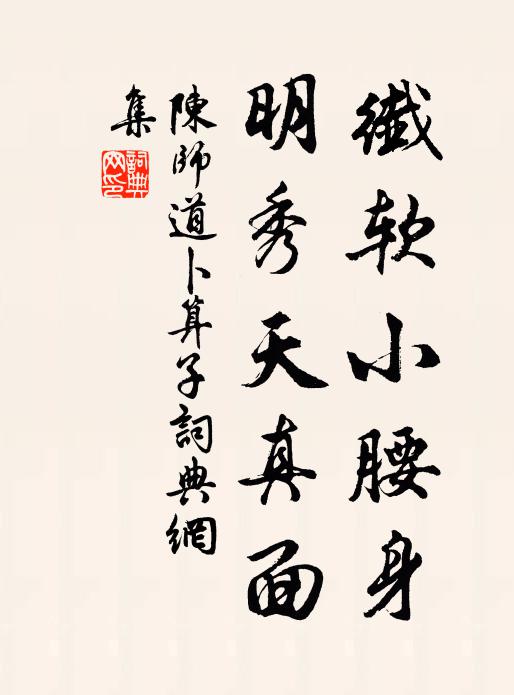 纖軟小腰身
明秀天真面
陳師道卜算子詞典網
集
詞典網印